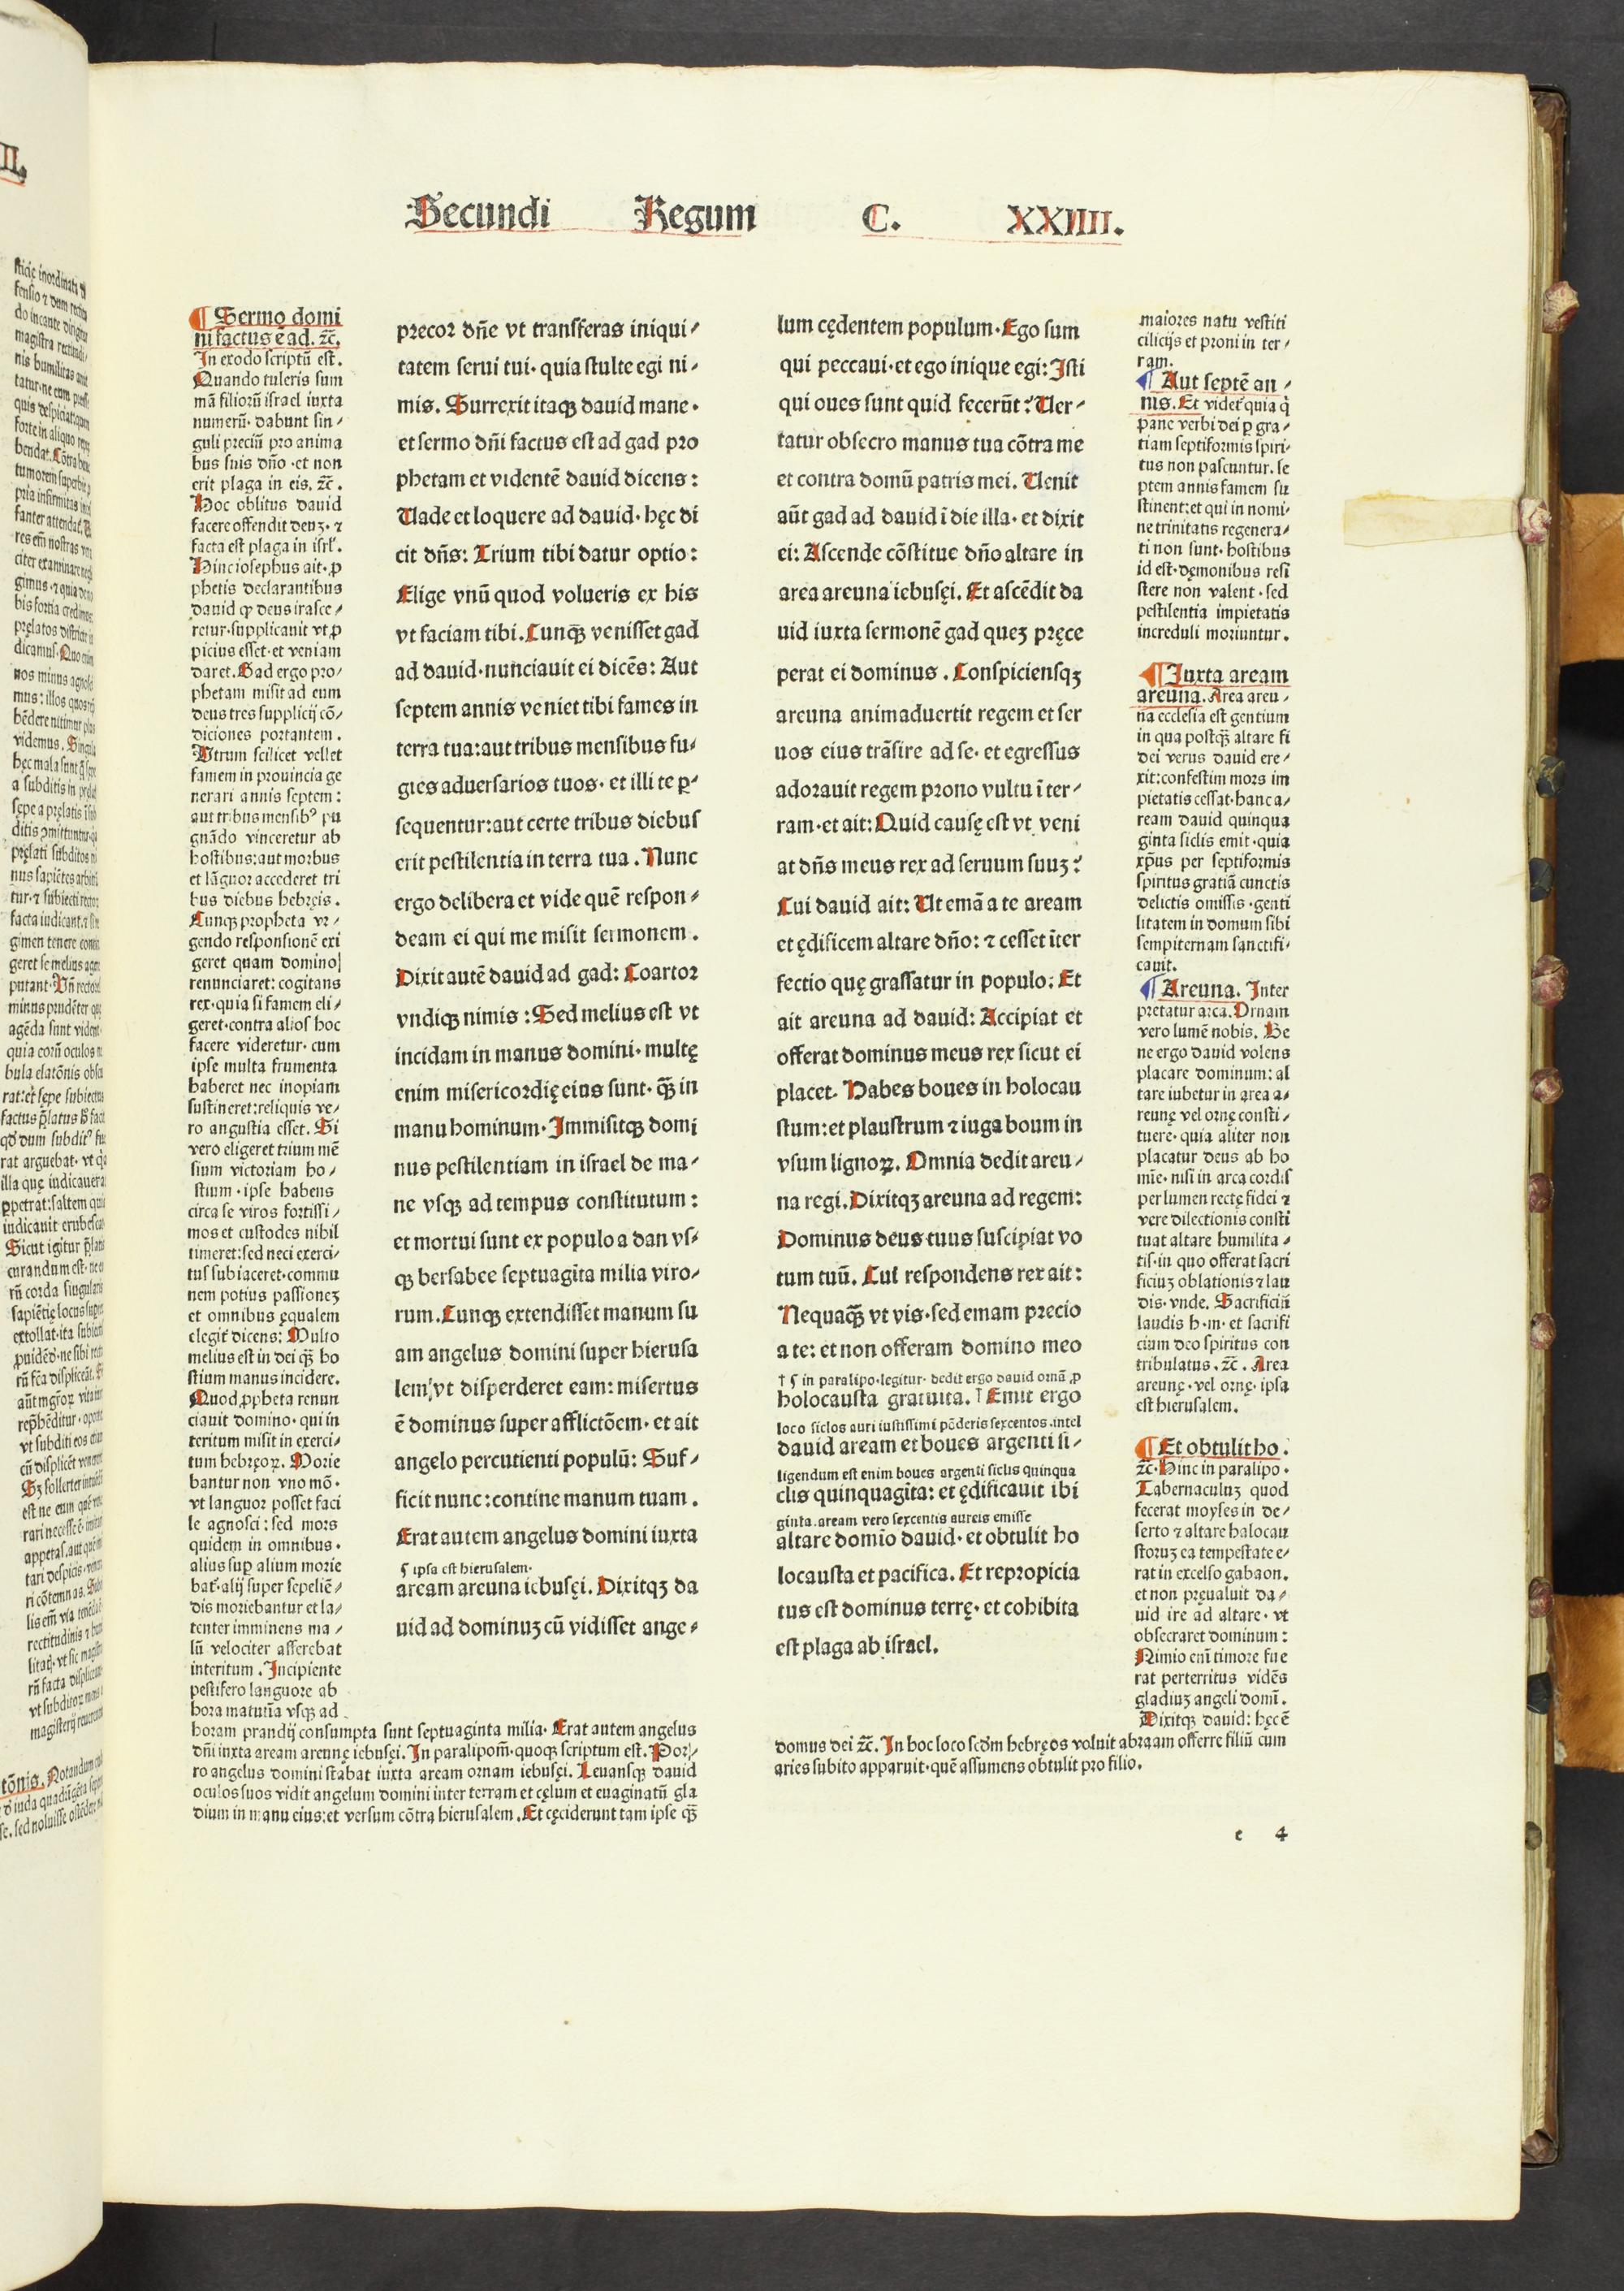 Secundi Regum C. XXIIII.
¶ Sermo domi
ni factus ē ad. ⁊c̄.
In exodo scriptū est.
Quando tuleris sum
mā filiorū israel iuxta
numerū· dabunt sin⸗
guli preciū pro anima
bus suis dño ·et non
erit plaga in eis. ⁊c̄.
Hoc oblitus dauid
facere offendit deuꝫ· ⁊
facta est plaga in isrl'.
Hinc iosephus ait· ꝓ
phetis declarantibus
dauid ꝙ deus irasce⸗
retur·supplicauit vt ꝓ
picius esset·et veniam
daret. Gad ergo pro⸗
phetam misit ad eum
deus tres supplicij cō⸗
diciones portantem.
Utrum scilicet vellet
famem in prouincia ge
nerari annis septem:
aut tribus mensibꝰ pu
gnādo vinceretur ab
hostibus:aut morbus
et lāguor accederet tri
bus diebus hebręis.
Cunqꝫ propheta vr⸗
gendo responsionē exi
geret quam domino
renunciaret: cogitans
rex·quia si famem eli⸗
geret·contra alios hoc
facere videretur· cum
ipse multa frumenta
haberet nec inopiam
sustineret:reliquis ve⸗
ro angustia esset. Si
vero eligeret trium mē
sium victoriam ho⸗
stium·ipse habens
circa se viros fortissi⸗
mos et custodes nihil
timeret:sed neci exerci⸗
tus subiaceret·commu
nem potius passioneꝫ
et omnibus ęqualem
elegit dicens: Multo
melius est in dei qꝫ̄ ho
stium manus incidere.
Quod ꝓpheta renun
ciauit domino·qui in
teritum misit in exerci⸗
tum hebręoꝝ. Morie
bantur non vno mō·
vt languor posset faci
le agnosci:sed mors
quidem in omnibus·
alius suꝑ alium morie
bat'·alij super sepeliē⸗
dis moriebantur et la⸗
tenter imminens ma⸗
lū velociter afferebat
interitum. Incipiente
pestifero languore ab
hora matutīa vsqꝫ ad
horam prandij consumpta sunt septuaginta milia· Erat autem angelus
dñi iuxta aream areunę iebusęi. In paralipom̄·quoqꝫ scriptum est. Por⸗
ro angelus domini stabat iuxta aream ornam iebusęi. Leuansqꝫ dauid
oculos suos vidit angelum domini inter terram et cęlum et euaginatū gla
dium in manu eius:et versum cōtra hierusalem. Et cęciderunt tam ipse qꝫ̄
precor dñe vt transferas iniqui⸗
tatem serui tui· quia stulte egi ni⸗
mis. Surrexit itaqꝫ dauid mane·
et sermo dñi factus est ad gad pro
phetam et videntē dauid dicens:
Uade et loquere ad dauid· hęc di
cit dñs: Trium tibi datur optio:
Elige vnū quod volueris ex his
vt faciam tibi. Cunqꝫ venisset gad
ad dauid·nunciauit ei dicēs: Aut
septem annis veniet tibi fames in
terra tua:aut tribus mensibus fu⸗
gies aduersarios tuos· et illi te ꝑ⸗
sequentur:aut certe tribus diebus
erit pestilentia in terra tua. Nunc
ergo delibera et vide quē respon⸗
deam ei qui me misit sermonem.
Dixit autē dauid ad gad: Coartor
vndiqꝫ nimis: Sed melius est vt
incidam in manus domini· multę
enim misericordię eius sunt· qꝫ̄ in
manu hominum· Immisitqꝫ domi
nus pestilentiam in israel de ma⸗
ne vsqꝫ ad tempus constitutum:
et mortui sunt ex populo a dan vs⸗
qꝫ bersabee septuagīta milia viro⸗
rum. Cunqꝫ extendisset manum su
am angelus domini super hierusa
lem vt disperderet eam: misertus
ē dominus super afflictōem· et ait
angelo percutienti populū: Suf⸗
ficit nunc:contine manum tuam.
Erat autem angelus domini iuxta
¶ ipsa est hierusalem·
aream areuna iebusęi. Dixitqꝫ da
uid ad dominuꝫ cū vidisset ange⸗
lum cędentem populum· Ego sum
qui peccaui·et ego inique egi: Isti
qui oues sunt quid fecerūt? Uer⸗
tatur obsecro manus tua cōtra me
et contra domū patris mei. Uenit
aūt gad ad dauid ī die illa· et dixit
ei: Ascende cōstitue dño altare in
area areuna iebusęi. Et ascēdit da
uid iuxta sermonē gad queꝫ pręce
perat ei dominus. Conspiciensqꝫ
areuna animaduertit regem et ser
uos eius trāsire ad se· et egressus
adorauit regem prono vultu ī ter⸗
ram·et ait: Quid causę est vt veni
at dñs meus rex ad seruum suuꝫ?
Cui dauid ait: Ut emā a te aream
et ędificem altare dño: ⁊ cesset īter
fectio quę grassatur in populo: Et
ait areuna ad dauid: Accipiat et
offerat dominus meus rex sicut ei
placet. Habes boues in holocau
stum:et plaustrum ⁊ iuga boum in
vsum lignoꝝ. Omnia dedit areu⸗
na regi. Dixitqꝫ areuna ad regem:
Dominus deus tuus suscipiat vo
tum tuū. Cui respondens rex ait:
Nequaqꝫ̄ vt vis·sed emam precio
a te: et non offeram domino meo
† ¶ in paralipo·legitur· dedit ergo dauid ornā ꝓ
holocausta gratuita. † Emit ergo
loco siclos auri iustissimi pōderis sexcentos·intel
dauid aream et boues argenti si⸗
ligendum est enim boues argenti siclis quinqua
clis quinquagīta: et ędificauit ibi
ginta·aream vero sexcentis aureis emisse
altare domīo dauid· et obtulit ho
locausta et pacifica. Et repropicia
tus est dominus terrę· et cohibita
est plaga ab israel.
maiores natu vestiti
cilicijs et proni in ter⸗
ram.
¶ Aut septē an⸗
nis. Et videt' quia q̇
pane verbi dei ꝑ gra⸗
tiam septiformis spiri⸗
tus non pascuntur. se
ptem annis famem su
stinent:et qui in nomi⸗
ne trinitatis regenera⸗
ti non sunt· hostibus
id est·dęmonibus resi
stere non valent·sed
pestilentia impietatis
increduli moriuntur.
¶ Iuxta aream
areuna. Area areu⸗
na ecclesia est gentium
in qua postqꝫ̄ altare fi
dei verus dauid ere⸗
xit:confestim mors im
pietatis cessat·hanc a⸗
ream dauid quinqua
ginta siclis emit·quia
xp̄us per septiformis
spiritus gratiā cunctis
delictis omissis·genti
litatem in domum sibi
sempiternam sanctifi⸗
cauit.
¶ Areuna. Inter
pretatur arca. Ornam
vero lumē nobis. Be
ne ergo dauid volens
placare dominum: al
tare iubetur in area a⸗
reunę vel ornę consti⸗
tuere·quia aliter non
placatur deus ab ho
mīe·nisi in arca cordis
per lumen rectę fidei ⁊
vere dilectionis consti
tuat altare humilita⸗
tis·in quo offerat sacri
ficiuꝫ oblationis ⁊ lau
dis·vnde. Sacrificiū
laudis h·m· et sacrifi
cium deo spiritus con
tribulatus. ⁊c̄. Area
areunę·vel ornę·ipsa
est hierusalem.
¶ Et obtulit ho.
⁊c̄·Hinc in paralipo·
Tabernaculuꝫ quod
fecerat moyses in de⸗
serto ⁊ altare halocau
storuꝫ ea tempestate e⸗
rat in excelso gabaon.
et non pręualuit da⸗
uid ire ad altare· vt
obsecraret dominum:
Nimio enī timore fue
rat perterritus vidēs
gladiuꝫ angeli domī.
Dixitqꝫ dauid: hęc ē
domus dei ⁊c̄. In hoc loco scd̄m hebręos voluit abraam offerre filiū cum
aries subito apparuit·quē assumens obtulit pro filio.
c 4